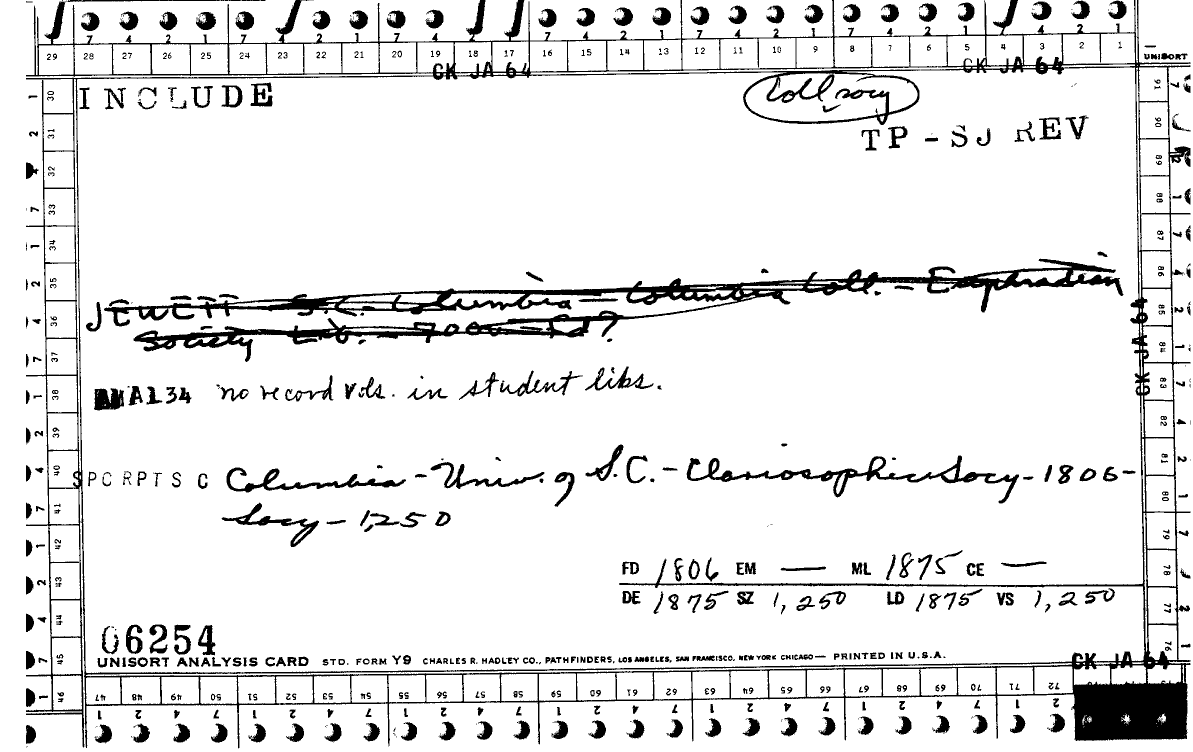 7 4 2 1 7 4 2 1 7 4 2 1 7 4 2 1 7 4 2 1 7 4 2 1 7 4 2 1
29 28 27 26 25 24 23 22 21 20 19 18 17 16 15 14 13 12 11 10 9 8 7 6 5 4 3 2 1
UNISORT
CK JA 64 CK JA 64
INCLUDE
Coll socy
TP - SJ REV
JEWETT S.C. - Columbia - Columbia Coll. - Euphradian
Society Lib. - 7000 - Fd?
AL34 no record vols. in student libs.
SPC RPT S C Columbia - Univ. of S.C. - Clariosophic Socy - 1806 -
Socy - 1,250
FD 1806 EM — ML 1875 CE —
DE 1875 SZ 1,250 LD 1875 VS 1,250
06254
UNISORT ANALYSIS CARD STD. FORM Y9 CHARLES R. HADLEY CO., PATHFINDERS, LOS ANGELES, SAN FRANCISCO, NEW YORK CHICAGO — PRINTED IN U.S.A.
CK JA 64
CK JA 64
30 31 32 33 34 35 36 37 38 39 40 41 42 43 44 45 46
91 90 89 88 87 86 85 84 83 82 81 80 79 78 77 76
47 48 49 50 51 52 53 54 55 56 57 58 59 60 61 62 63 64 65 66 67 68 69 70 71 72
1 2 4 7 1 2 4 7 1 2 4 7 1 2 4 7 1 2 4 7 1 2 4 7 1 2